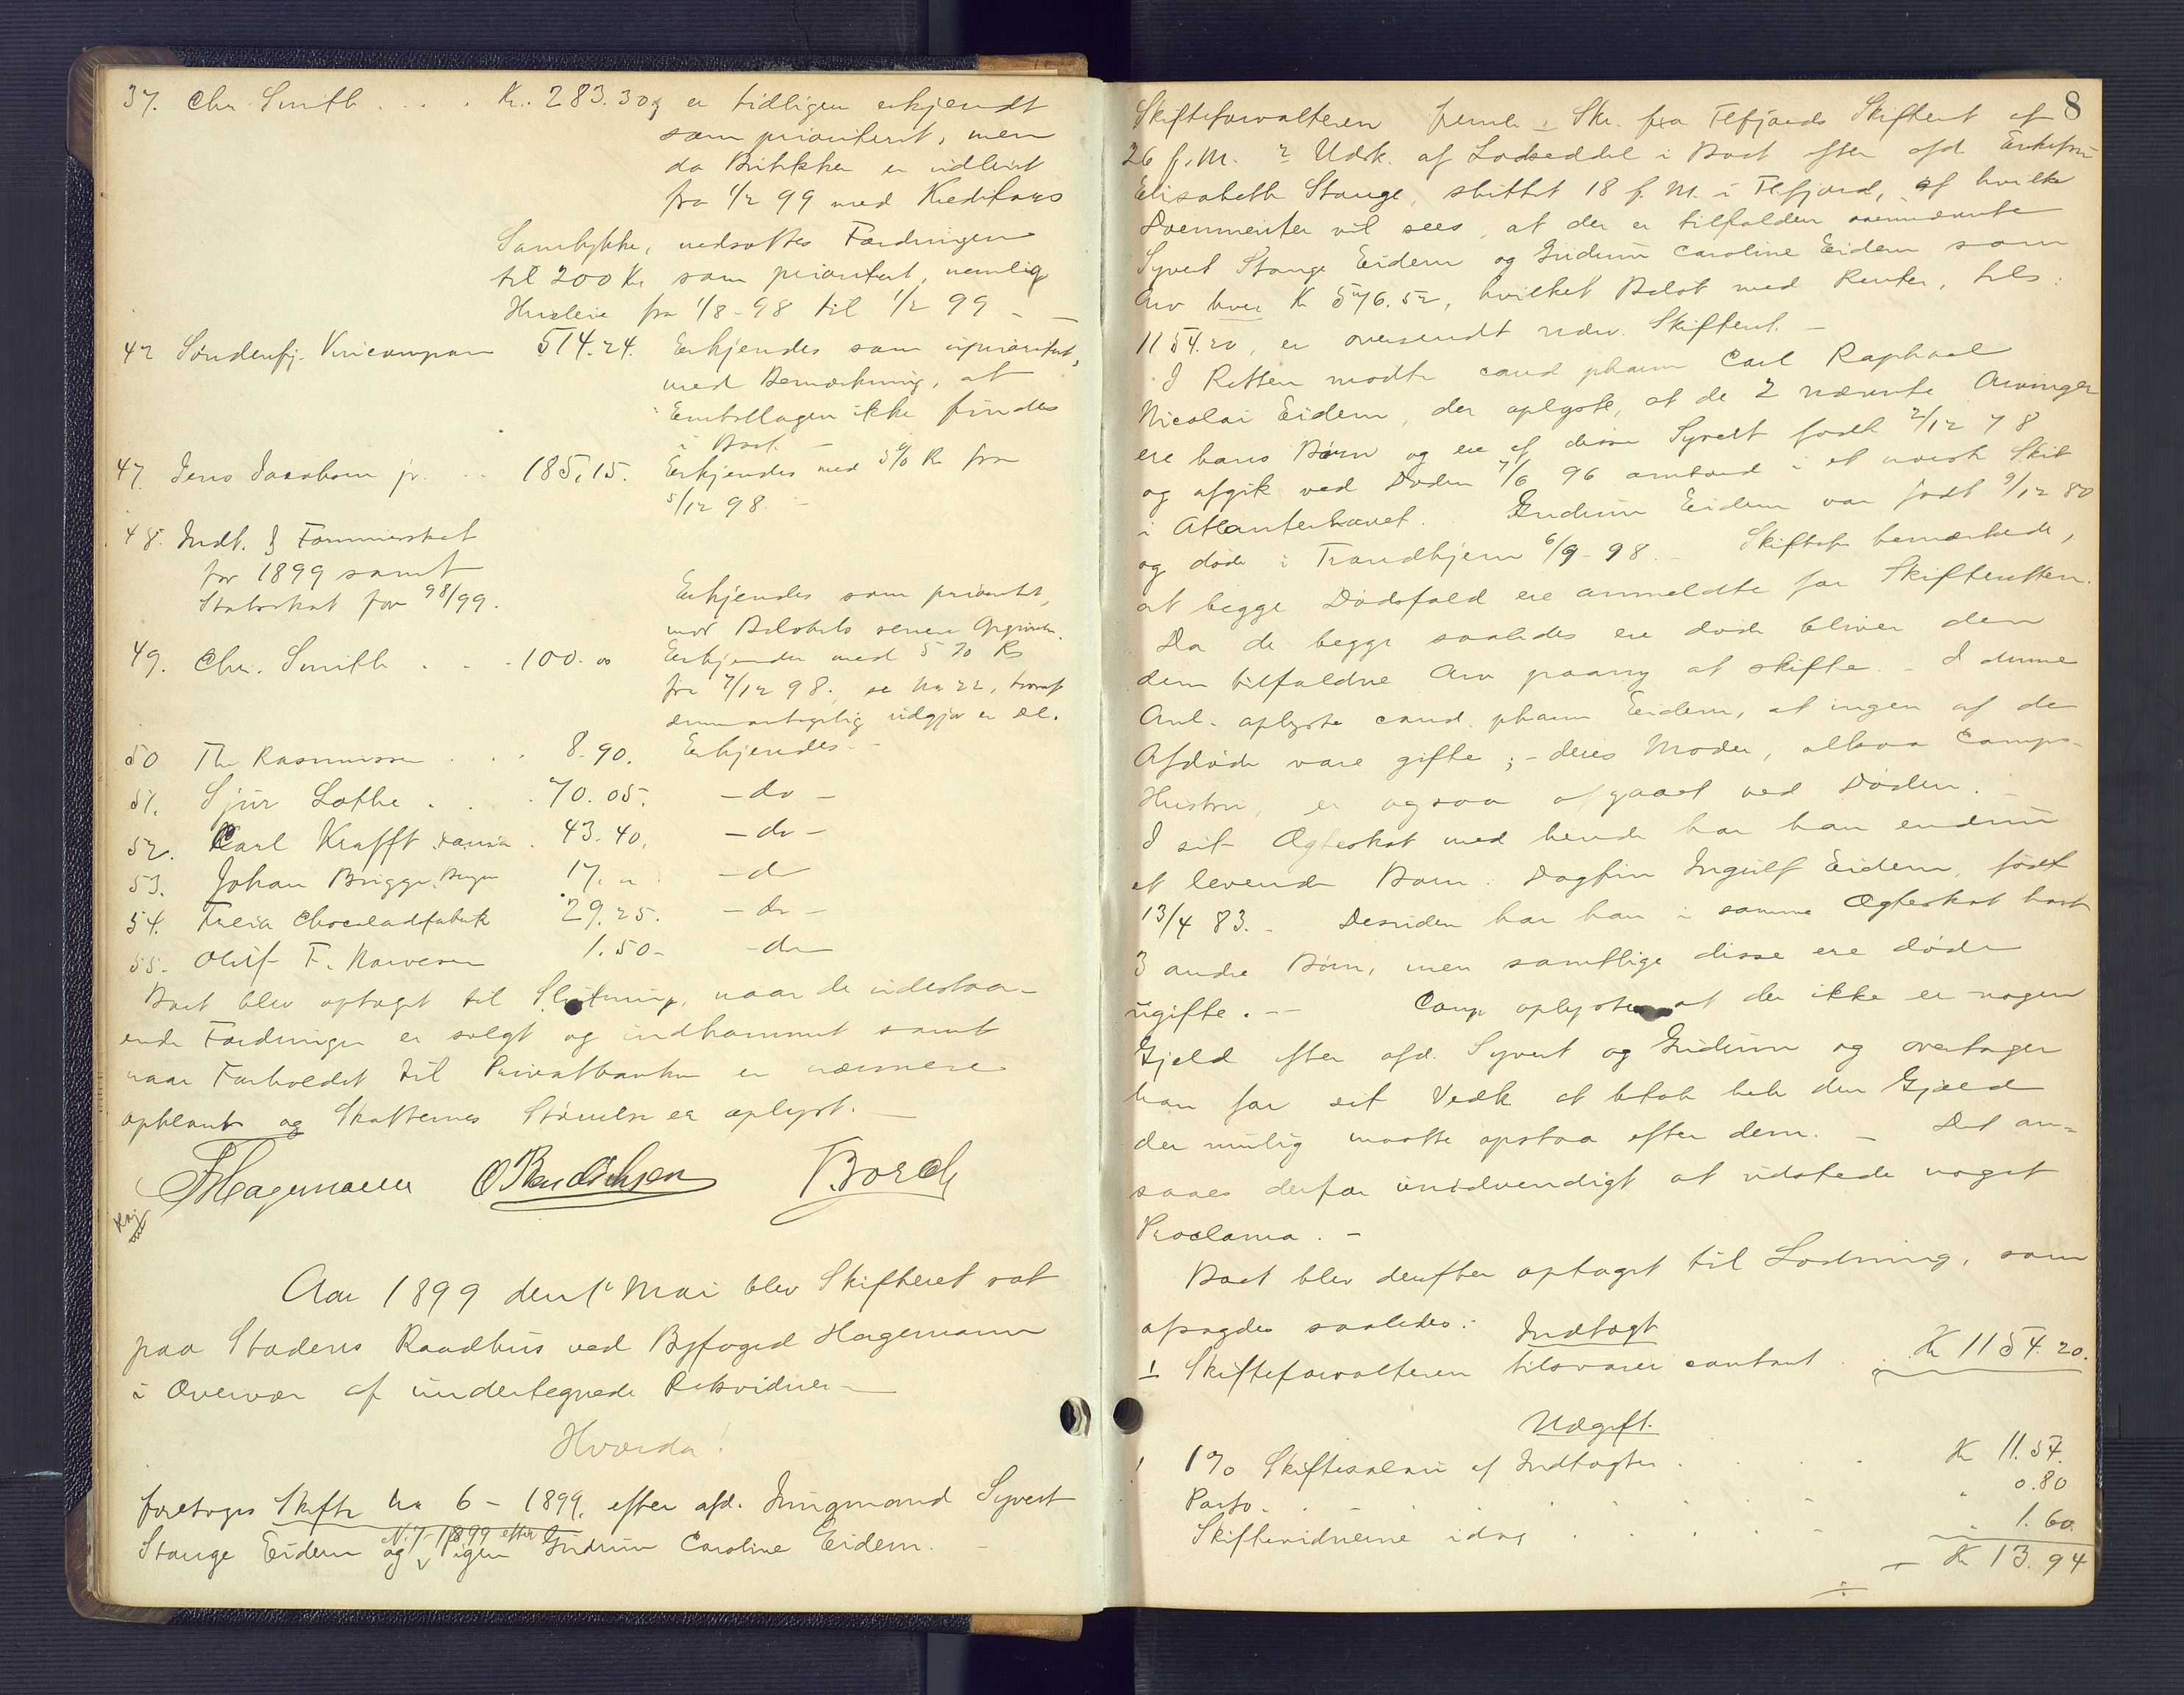 37. Chr Smith . . . . Kr. 283.30, er tidligere erkjendt
som prioriteret, men
da Butikken er udleiet
fra 1/2 99 med Kreditors
Samtykke, nedsattes Fordringen
til 200 Kr som prioritert, nemlig
Husleie fra 1/8 - 98 til 1/2 99 - -
42 Søndenfj. Vincompani 514.24. Erkjendes som uprioritert,
med Bemærkning, at
Emballagen ikke findes
i Boet. -
47. Jens Jacobsen jr. . . 185,15. Erkjendes med 5% R. fra
5/12 98. -
48. Indt. & Formueskat
for 1899 samt
Statsskat for 98/99. Erkjendes som prioritet,
mod Beløbets senere Opgivelse.
49. Chr. Smith . . . 100.00 Erkjendes med 5 % Rs
fra 7/12 98. se No 22, hvoraf
denne antagelig udgjør en Del.
50 Th Rasmussen . . . 8.90. Erkjendes -
51. Sjur Lothe . . . 70.05. - do -
52. Carl Krafft Xania . 43.40. - do -
53. Johan Brigge, Bergen 17. " - do
54. Freia Chocoladfabrik 29.25. - do -
55. Oluf F. Narvesen 1.50 - - do
Boet blev optaget til Slutning, naar de udestaa-
ende Fordringer er solgt og indkommet samt
naar Forholdet til Privatbanken er nærmere
opklaret og Skatternes Størrelse er oplyst. -
Hagemann O Bendichsen T. Borch
Aar 1899 den 1' Mai blev Skifteret sat
paa Stadens Raadhus ved Byfoged Hagemann
i Overvær af undertegnede Retsvidner -
Hvorda!
foretoges Skifte No 6 - 1899, efter afd. Jungmand Syvert
No 7 - 1899 efter
Stange Eidem og Pigen Gudrun Caroline Eidem. -
8
Skifteforvalteren freml. 1 Skr. fra Flefjords Skifteret af
26 f. M. 2 Udsk. af Lodseddel i Boet efter afd Enkefru
Elisabeth Stange, sluttet 18 f. M. i Flefjord, af hvilke
Documenter vil sees, at der er tilfalden ovennævnte
Syvert Stange Eidem og Gudrun Caroline Eidem som
Arv hver Kr 576.52, hvilket Beløb med Renter, tils.
1154.20, er oversendt nærv. Skifteret. -
I Retten mødte cand pharm Carl Raphael
Nicolai Eidem, der oplyste, at de 2 nævnte Arvinger
ere hans Børn og er af disse Syvert født 2/12 78
og afgik ved Døden 7/6 96 ombord i et norsk Skib
i Atlanterhavet. Gudrun Eidem var født 9/12 80
og døde i Trondhjem 6/9 - 98. - Skiftef bemærkede,
at begge Dødsfald ere anmeldte for Skifteretten.
Da de begge saaledes ere døde bliver den
dem tilfaldne Arv paany at skifte. - I denne
Anl. oplyste cand. pharm Eidem, at ingen af de
Afdøde vare gifte; - deres Moder, altsaa Comps
Hustru, er ogsaa afgaaet ved Døden. -
I sit Ægteskab med hende har han endnu
et levende Barn: Dagfin Ingulf Eidem, født
13/4 83. - Desuden har han i samme Ægteskab havt
3 andre Børn, men samtlige disse ere døde
ugifte. - - Comp oplyste at der ikke er nogen
Gjeld efter afd. Syvert og Gudrun og overtager
han for sit Vedk at betale hele den Gjæld
der mulig maatte opstaa efter dem. - Det an-
saaes derfor unødvendigt at udstede noget
Proclama. -
Boet blev derefter optaget til Lodning, som
afsagdes saaledes: Indtægt
1 Skifteforvalteren tilsvarer contant . . Kr 1154.20.
Udgift.
1 1% Skiftesalær af Indtægten . . . Kr 11.54.
Porto . . . . . . . " 0.80
Skiftevidnerne idag . . . . . " 1.60
- Kr 13.94